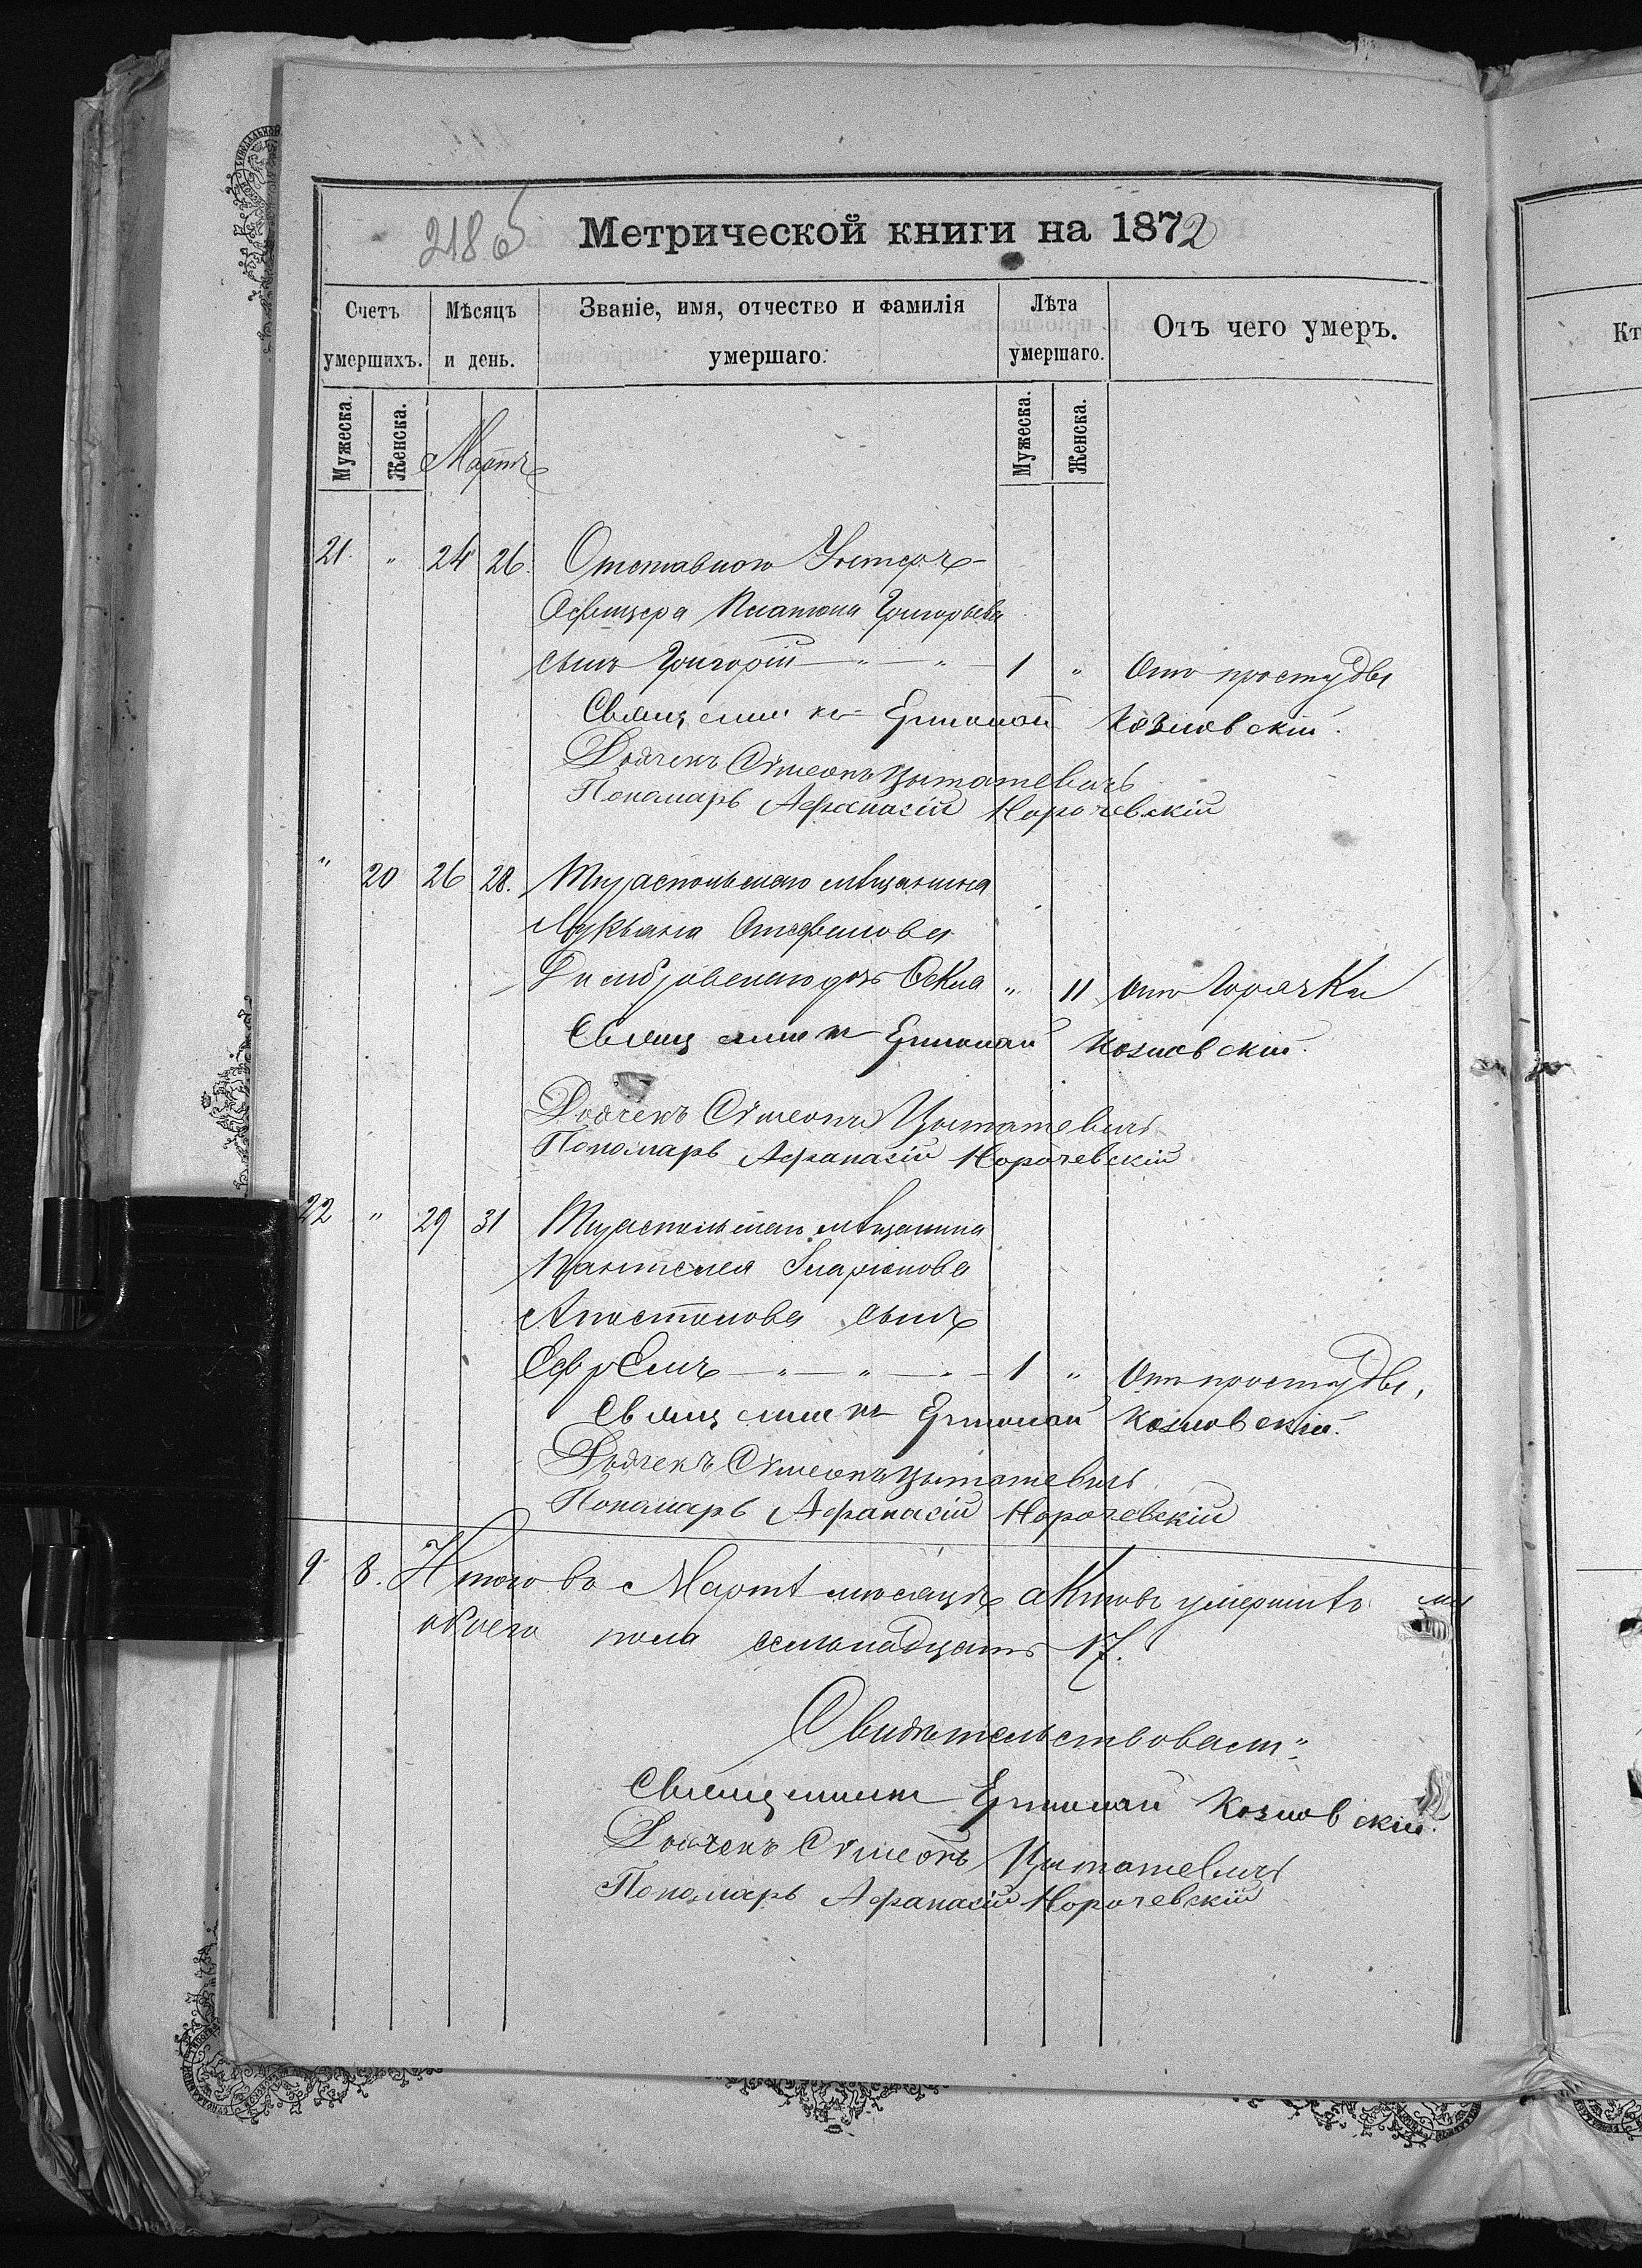 218 об
Метрической книги на 1872
Счетъ умершихъ.
Мѣсяцъ и день.
Званіе, имя, отчество и фамилія умершаго.
Лѣта умершаго.
Отъ чего умеръ.
Мужеска. Женска. Мартъ Мужеска. Женска.
21. " 24 26. Отставного Унтеръ-
Офицера Платона Григорьева
сынъ Григорій — " — " — 1 " Отъ простуды
Священникъ Ермолай Козловскій.
Дьячекъ Сѵмеонъ
Пономарь Афанасій Норочевскій
" 20 26 28. Тираспольскаго мѣщанина
Лукьяна
дочь " 11 Отъ Горячки
Священникъ Ермолай Козловскій.
Дьячекъ Сѵмеонъ
Пономарь Афанасій Норочевскій
22 " 29 31 Тираспольскаго мѣщанина
Пантелея Иларіонова
Апостолова сынъ
Ефремъ — " — " — " — 1 " Отъ простуды,
Священникъ Ермолай Козловскій.
Дьячекъ Сѵмеонъ
Пономарь Афанасій Норочевскій
9 8. Итого въ Мартѣ мѣсяцѣ актовъ умершихъ
обоего пола семьнадцать 17.
Свидѣтельствовали:
Священникъ Ермолай Козловскій.
Дьячекъ Сѵмеонъ
Пономарь Афанасій Норочевскій
Кт